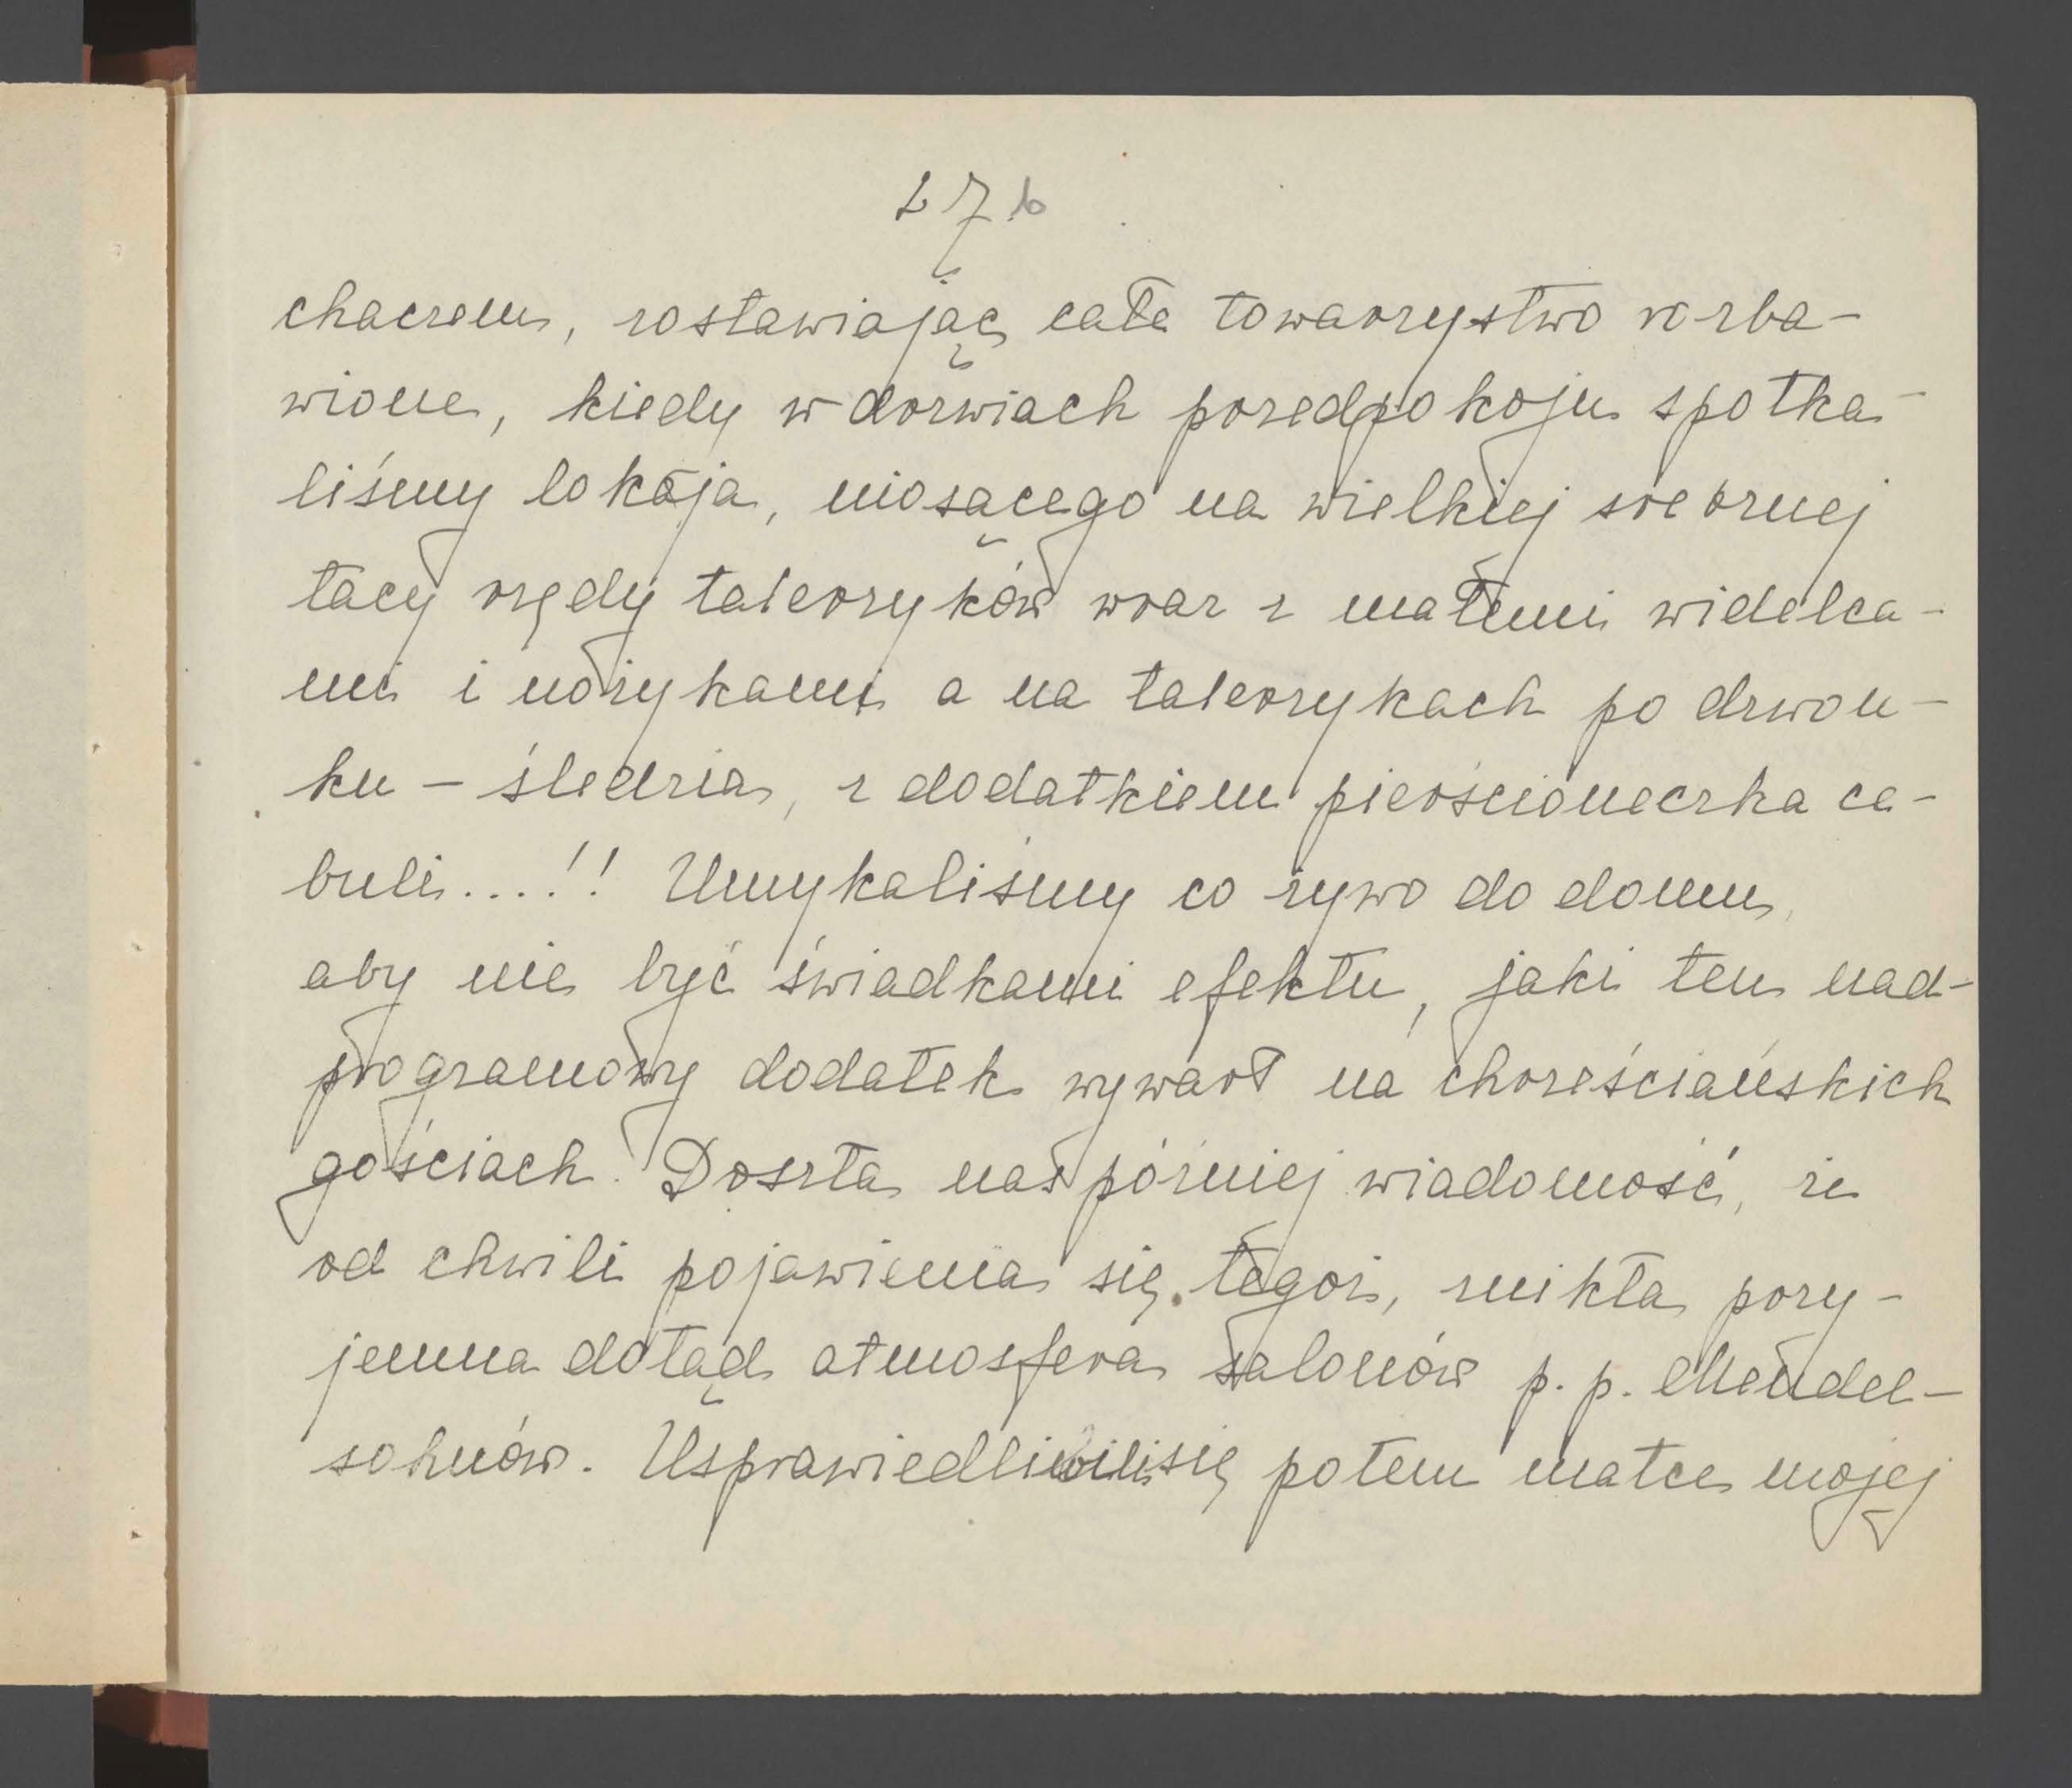 27b
chaczem, zostawiając całe towarzystwo rozba-
wione, kiedy w drzwiach przedpokoju spotka-
liśmy lokaja, niosącego na wielkiej srebrnej
tacy rzędy talerzyków wraz z małemi widelca-
mi i nożykami a na talerzykach po dzwon-
ku - śledzia, z dodatkiem pierścioneczka ce-
buli....!! Umykaliśmy co żywo do domu,
aby nie być świadkami efektu, jaki ten nad-
programowy dodatek wywarł na chrześciańskich
gościach. Doszła nas później wiadomość, że
od chwili pojawienia się tegoż, znikła przy-
jemna dotąd atmosfera salonów p. p. Mendel-
sohnów. Usprawiedliwili się potem matce mojej